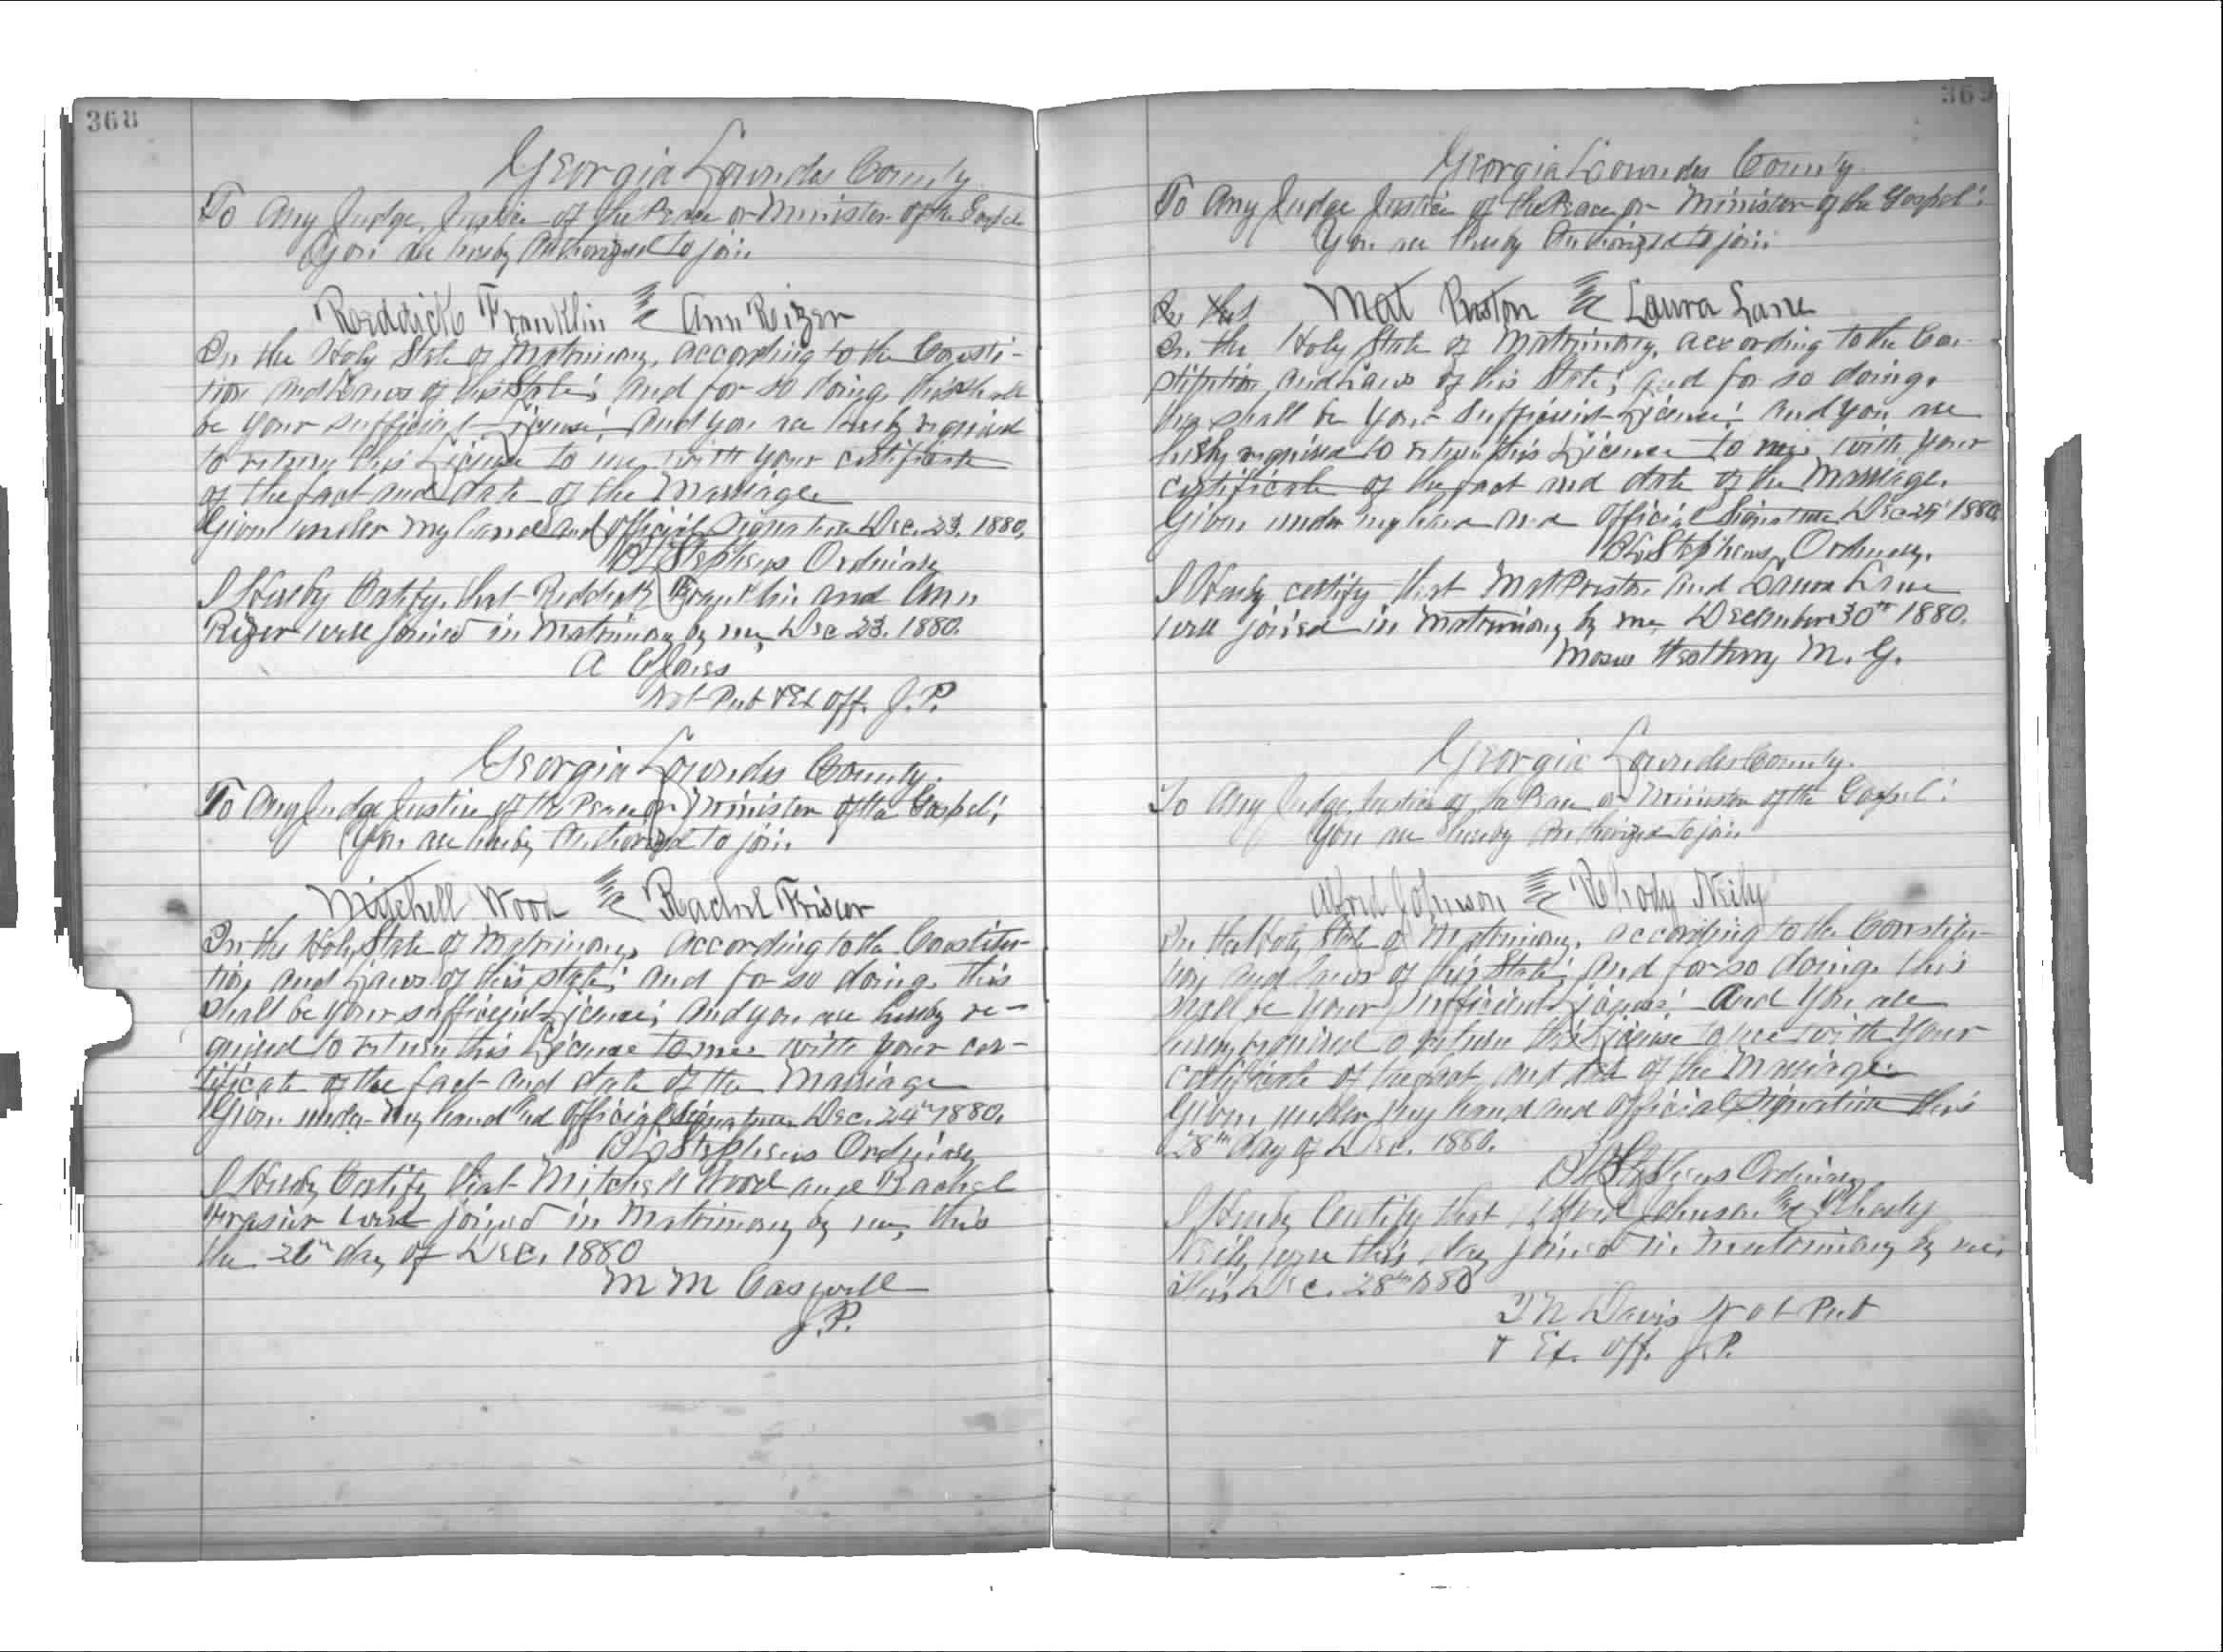 368
Georgia Lowndes County
To Any Judge, Justice of the Peace or Minister of the Gospel
You are hereby Authorized to join
Reddick Franklin & Ann Rizer
In the Holy State of Matrimony, according to the Consti-
tion and Laws of this State; and for so doing, this shall
be your sufficient License; and you are hereby required
to return this License to me, with your certificate
of the fact and date of the Marriage.
Given under my hand and official signature Dec. 23. 1880.
Stephens Ordinary
I Hereby Certify, that Reddick Franklin and Ann
Rizer were joined in Matrimony by me, Dec 23. 1880.
A
Not Pub & Ex Off. J.P.
Georgia Lowndes County.
To Any Judge Justice of the Peace or Minister of the Gospel;
You are hereby Authorized to join
Mitchell Wood & Rachel
In the Holy State of Matrimony, according to the Constitu-
tion and Laws of this State; and for so doing, this
shall be your sufficient License; and you are hereby re-
quired to return this License to me with your cer-
tificate of the fact and date of the Marriage
Given under my hand and official signature Dec. 24th 1880.
Stephens Ordinary
I Hereby Certify that Mitchell Wood and Rachel
Frasier were joined in Matrimony by me, this
the 26th day of Dec. 1880
M M Caswell
J.P.
369
Georgia Lowndes County
To Any Judge Justice of the Peace or Minister of the Gospel:
You are hereby Authorized to join
Mat Preston & Laura Lane
In the Holy State of Matrimony, according to the Con-
stitution and Laws of this State; and for so doing,
this shall be your sufficient License; and you are
hereby required to return this License to me, with your
certificate of the fact and date of the Marriage.
Given under my hand and official signature Dec 1880
Stephens, Ordinary.
I Hereby certify that Mat Preston and Laura Lane
were joined in Matrimony by me, December 30th 1880.
Moses M. G.
Georgia Lowndes County.
To Any Judge, Justice of the Peace or Minister of the Gospel:
You are hereby Authorized to join
Alfred Johnson & Rhody Neily
In the Holy State of Matrimony, according to the Constitu-
tion and laws of this State; and for so doing, this
shall be your sufficient License; And you are
hereby required to return this License to me with your
certificate of the fact and date of the Marriage.
Given under my hand and official signature this
28th day of Dec. 1880.
Stephens Ordinary
I Hereby Certify that Alfred Johnson & Rhody
Neily were this day joined in matrimony by me.
This Dec. 28th 1880
Davis Not Pub
& Ex. Off. J.P.